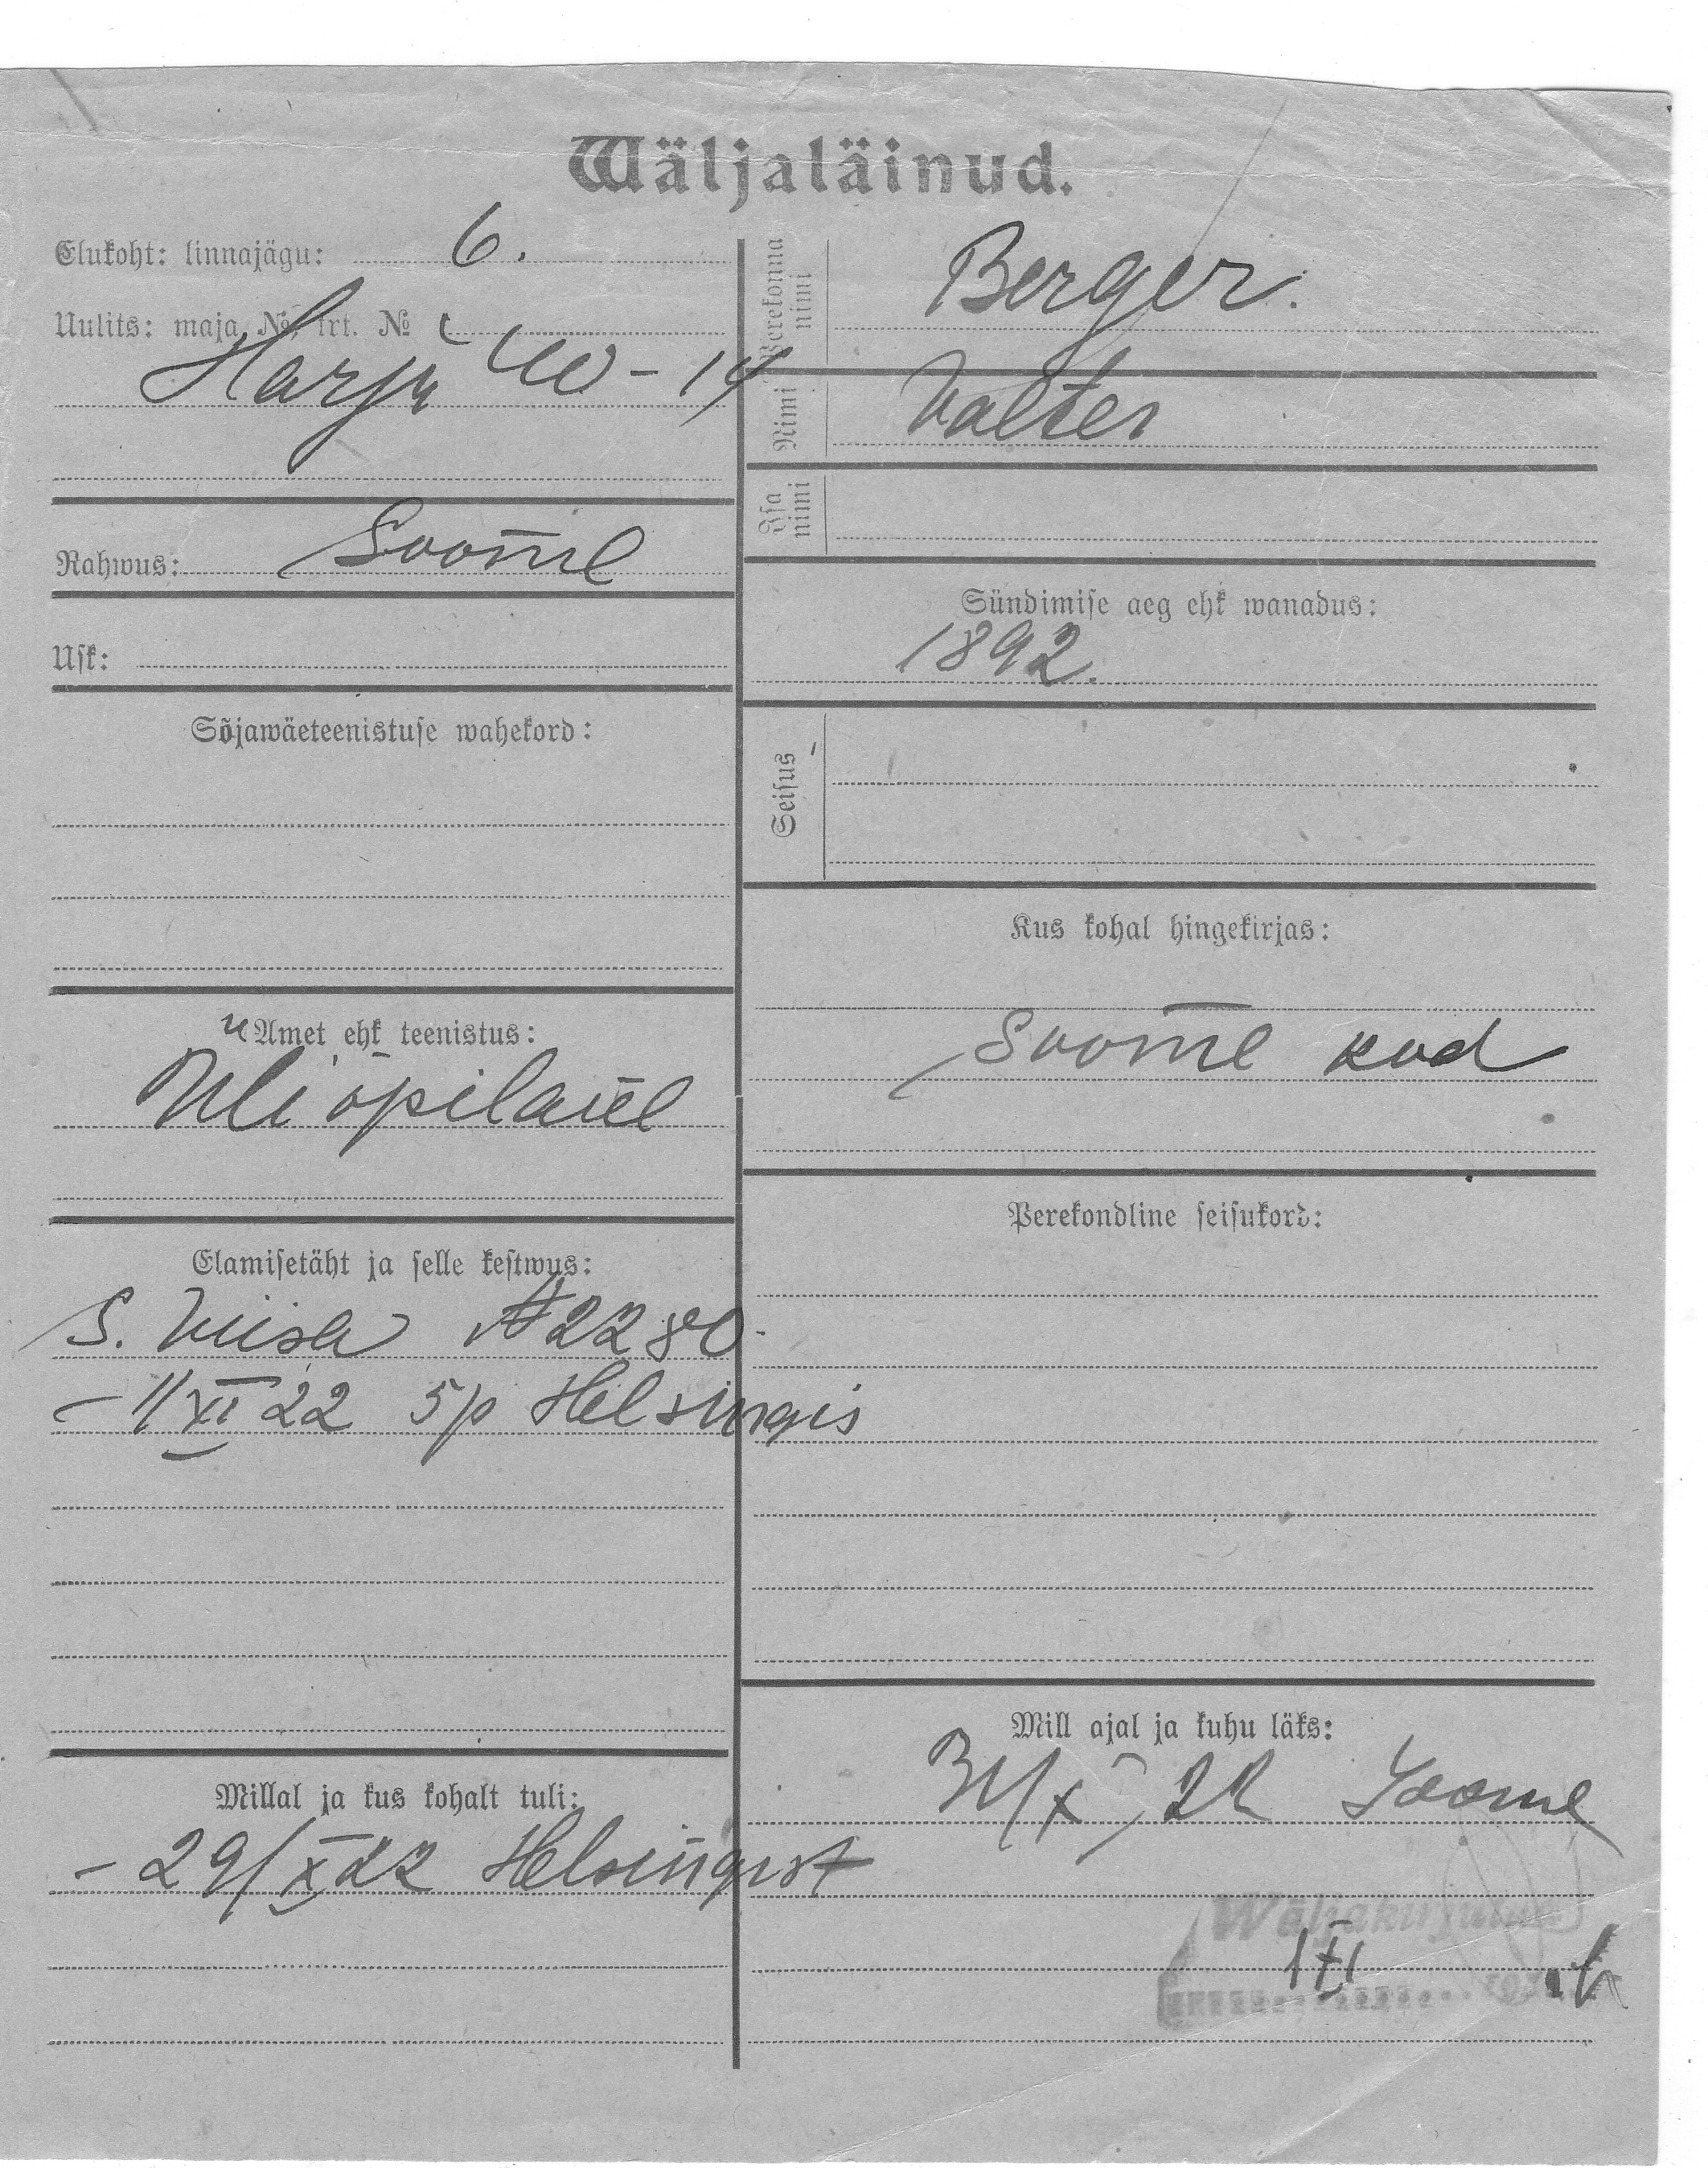 Wäljaläinud.
Elukoht: linnajägu: 6.
Uulits: maja № krt. №
Harju 40 - 14
Rahwus: Soome
Usk:
Sõjawäeteenistuse wahekord:
Amet ehk teenistus:
Üliõpilane
Elamisetäht ja selle kestwus:
S. Viisa № 2280
- 1/XI 22 5p Helsingis
Millal ja kus kohalt tuli:
- 29/X 22 Helsingist
Perekonna nimi
Berger.
Nimi
Valter
Isa nimi
Sündimise aeg ehk wanadus:
1892.
Seisus
Kus kohal hingekirjas:
Soome kod
Perekondline seisukord:
Mill ajal ja kuhu läks:
31/X 22 Soome
Wäljakirjutud
1 XI